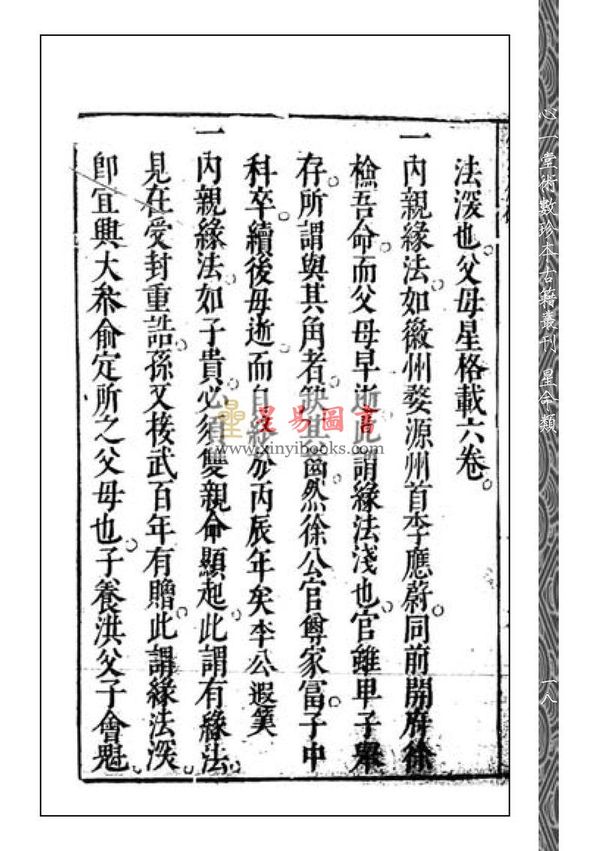 法深也父母星格載六卷
一內親緣法如徽州婺源州首李應蔚同前開府徐
檢吾命而父母早逝此謂緣法淺也官雖甲子舉
存所謂與其角者缺其齒然徐公官尊家富子中
科卒續後母逝而自終於丙辰年矣李公遐筭
一內親緣法如子貴必須雙親命顯起此謂有緣法
見在受封重誥孫又接武百年有贈此謂緣法深
卽宜興大叅俞定所之父母也子養洪父子會魁
心一堂術數珍本古籍叢刊 星命類
一八
星易圖書
www.xinyibooks.com